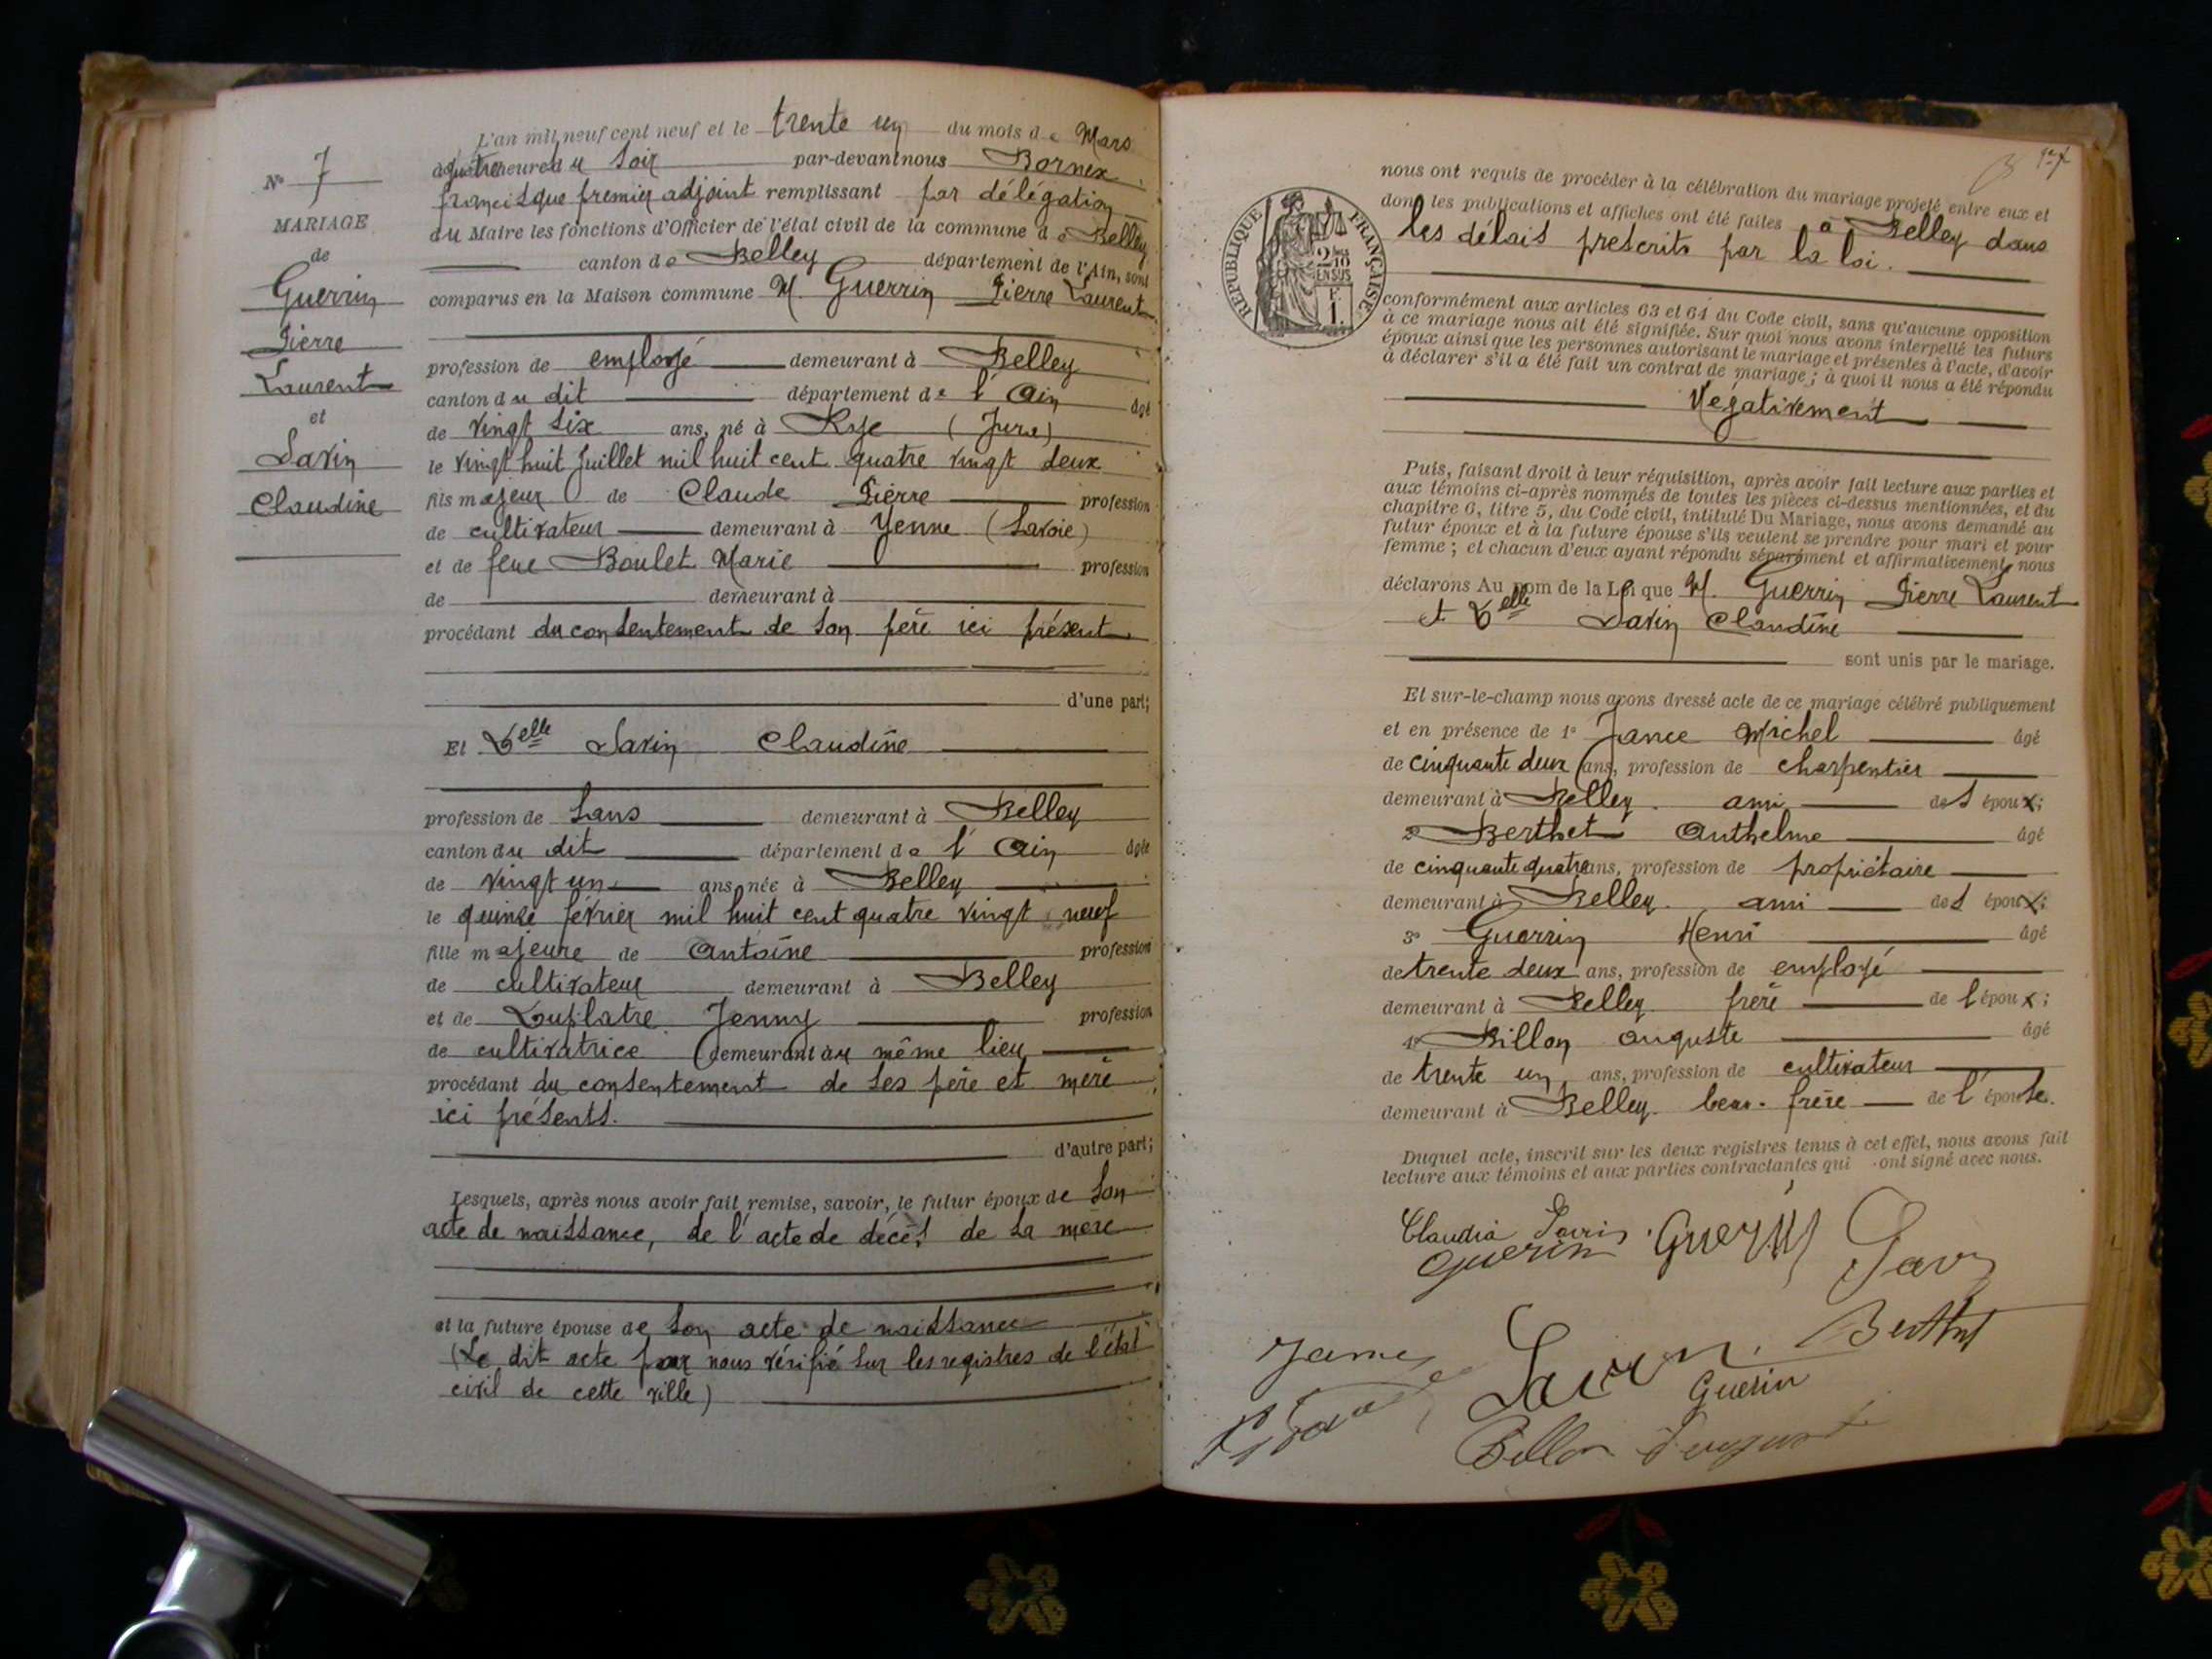 L'an mil neuf cent neuf et le trente un du mois de Mars
à quatre heure du soir par-devant nous Bornex
francisque premier adjoint remplissant par délégation
du Maire les fonctions d'Officier de l'état civil de la commune de Belley
canton de Belley département de l'Ain, sont
comparus en la Maison commune M. Guerrin Pierre Laurent
profession de employé demeurant à Belley
canton du dit département de l'Ain âgé
de vingt six ans, né à Rye (Jura)
le vingt huit Juillet mil huit cent quatre vingt deux
fils majeur de Claude Pierre profession
de cultivateur demeurant à Yenne (Savoie)
et de feue Boulet Marie profession
de demeurant à
procédant du consentement de son père ici présent
d'une part;
Et Delle Savin Claudine
profession de sans demeurant à Belley
canton du dit département de l'Ain âgée
de vingt un ans, née à Belley
le quinze février mil huit cent quatre vingt neuf
fille majeure de Antoine profession
de cultivateur demeurant à Belley
et de Duplatre Jenny profession
de cultivatrice demeurant au même lieu
procédant du consentement de ses père et mère
ici présents.
d'autre part;
Lesquels, après nous avoir fait remise, savoir, le futur époux de son
acte de naissance, de l'acte de décès de sa mère
et la future épouse de son acte de naissance
(Le dit acte par nous vérifié sur les registres de l'état
civil de cette ville)
N° 7
MARIAGE
de
Guerrin
Pierre
Laurent
et
Savin
Claudine
nous ont requis de procéder à la célébration du mariage projeté entre eux et
dont les publications et affiches ont été faites à Belley dans
les délais prescrits par la loi.
RÉPUBLIQUE FRANÇAISE
2/10
EN SUS
F.
1.
conformément aux articles 63 et 64 du Code civil, sans qu'aucune opposition
à ce mariage nous ait été signifiée. Sur quoi nous avons interpellé les futurs
époux ainsi que les personnes autorisant le mariage et présentes à l'acte, d'avoir
à déclarer s'il a été fait un contrat de mariage; à quoi il nous a été répondu
Négativement
Puis, faisant droit à leur réquisition, après avoir fait lecture aux parties et
aux témoins ci-après nommés de toutes les pièces ci-dessus mentionnées, et du
chapitre 6, titre 5, du Code civil, intitulé Du Mariage, nous avons demandé au
futur époux et à la future épouse s'ils veulent se prendre pour mari et pour
femme; et chacun d'eux ayant répondu séparément et affirmativement, nous
déclarons Au nom de la Loi que M. Guerrin Pierre Laurent
et Delle Savin Claudine
sont unis par le mariage.
Et sur-le-champ nous avons dressé acte de ce mariage célébré publiquement
et en présence de 1° Jance Michel âgé
de cinquante deux ans, profession de charpentier
demeurant à Belley ami des époux;
2° Berthet Anthelme âgé
de cinquante quatre ans, profession de propriétaire
demeurant à Belley ami des époux;
3° Guerrin Henri âgé
de trente deux ans, profession de employé
demeurant à Belley frère de l'époux;
4° Billon Auguste âgé
de trente un ans, profession de cultivateur
demeurant à Belley beau-frère de l'épouse.
Duquel acte, inscrit sur les deux registres tenus à cet effet, nous avons fait
lecture aux témoins et aux parties contractantes qui ont signé avec nous.
Claudia Savin
Guerin Guerin Savin
Berthet
Savin
Guerin
Billon Auguste